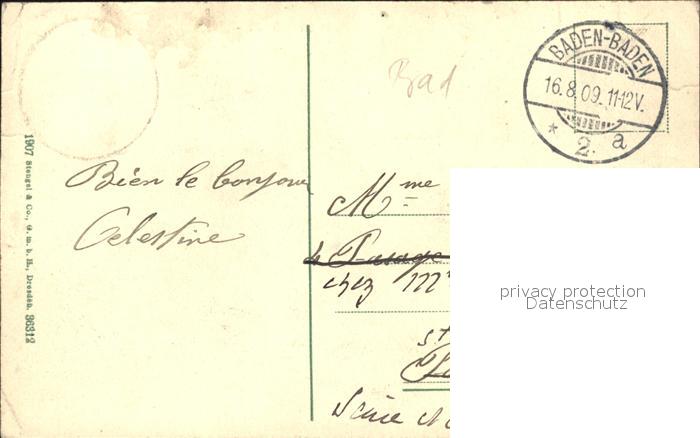 BADEN-BADEN
16.8.09. 11-12V.
* 2. a
Bad
1907 Stengel & Co., G. m. b. H., Dresden. 36312
Bien le bonjour
Celestine
Mme
4 Passage
chez Mr
St
privacy protection
Datenschutz